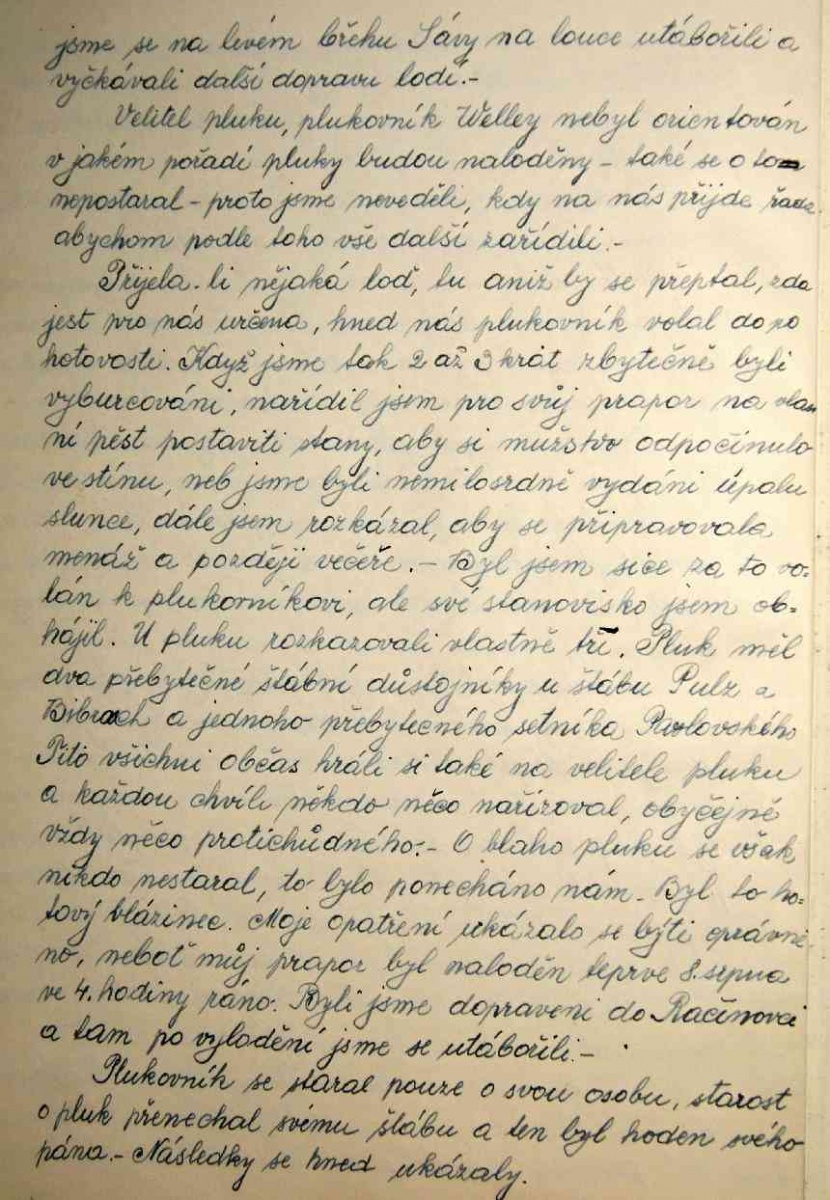 jsme se na levém břehu Sávy na louce utábořili a
vyčkávali další dopravu lodí.-
Velitel pluku, plukovník Welley nebyl orientován
v jakém pořadí pluky budou naloděny - také se o to
nepostaral - proto jsme nevěděli, kdy na nás přijde řada
abychom podle toho vše další zařídili.-
Přijela-li nějaká loď, tu aniž by se přeptal, zda
jest pro nás určena, hned nás plukovník volal do po
hotovosti. Když jsme tak 2 až 3 krát zbytečně byli
vyburcováni, nařídil jsem pro svůj prapor na vlast
ní pěst postaviti stany, aby si mužstvo odpočinulo
ve stínu, neb jsme byli nemilosrdně vydáni úpalu
slunce, dále jsem rozkázal, aby se připravovala
menáž a později večeře.- Byl jsem sice za to vo-
lán k plukovníkovi, ale své stanovisko jsem ob-
hájil. U pluku rozkazovali vlastně tři. Pluk měl
dva přebytečné štábní důstojníky u štábu Pulz a
Bibrach a jednoho přebytečného setníka Pavlovského
Tito všichni občas hráli si také na velitele pluku
a každou chvíli někdo něco nařizoval, obyčejně
vždy něco protichůdného.- O blaho pluku se však
nikdo nestaral, to bylo ponecháno nám. Byl to ho-
tový blázinec. Moje opatření ukázalo se býti oprávně-
no, neboť můj prapor byl naloděn teprve 8. srpna
ve 4. hodiny ráno. Byli jsme dopraveni do Račinovci
a tam po vylodění jsme se utábořili.-
Plukovník se staral pouze o svou osobu, starost
o pluk přenechal svému štábu a ten byl hoden svého
pána.- Následky se hned ukázaly.